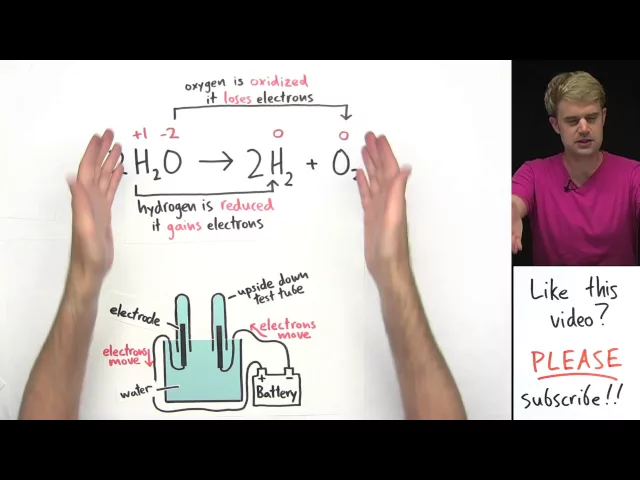 oxygen is oxidized
it loses electrons
+1 -2 0 0
2 H₂O → 2H₂ + O₂
hydrogen is reduced
it gains electrons
upside down
test tube
electrode
electrons
move
electrons
move
water
+ −
Battery
Like this
video?
PLEASE
subscribe!!